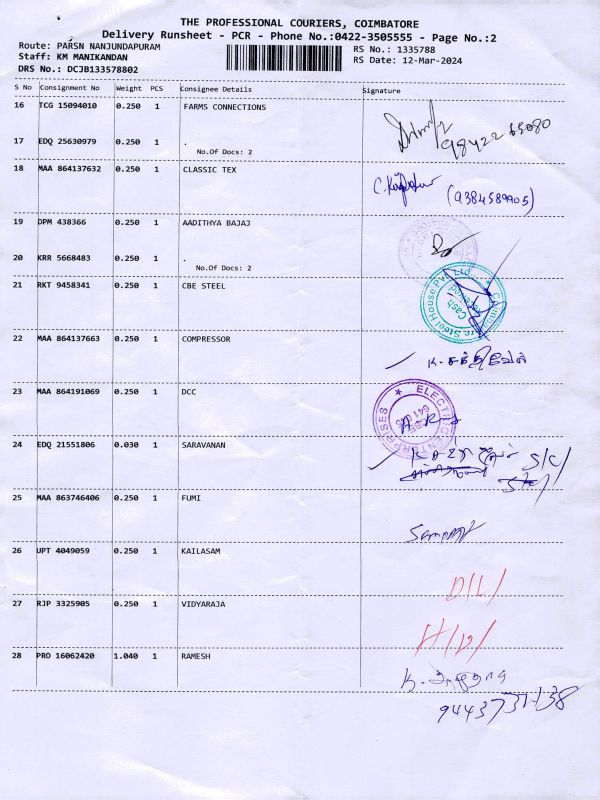 THE PROFESSIONAL COURIERS, COIMBATORE
Delivery Runsheet - PCR - Phone No.:0422-3505555 - Page No.:2
Route: PARSN NANJUNDAPURAM
RS No.: 1335788
Staff: KM MANIKANDAN
RS Date: 12-Mar-2024
DRS No.: DCJB133578802
S No Consignment No Weight PCS Consignee Details Signature
16 TCG 15094010 0.250 1 FARMS CONNECTIONS
17 EDQ 25630979 0.250 1 .
No.Of Docs: 2
18 MAA 864137632 0.250 1 CLASSIC TEX
(9384589905)
19 DPM 438366 0.250 1 AADITHYA BAJAJ
20 KRR 5668483 0.250 1 .
No.Of Docs: 2
21 RKT 9458341 0.250 1 CBE STEEL
Coimbatore Steel House Pvt. Ltd.,
Cash
22 MAA 864137663 0.250 1 COMPRESSOR
23 MAA 864191069 0.250 1 DCC
24 EDQ 21551806 0.030 1 SARAVANAN
S/C/
25 MAA 863746406 0.250 1 FUMI
26 UPT 4049059 0.250 1 KAILASAM
D/L/
27 RJP 3325905 0.250 1 VIDYARAJA
28 PRO 16062420 1.040 1 RAMESH